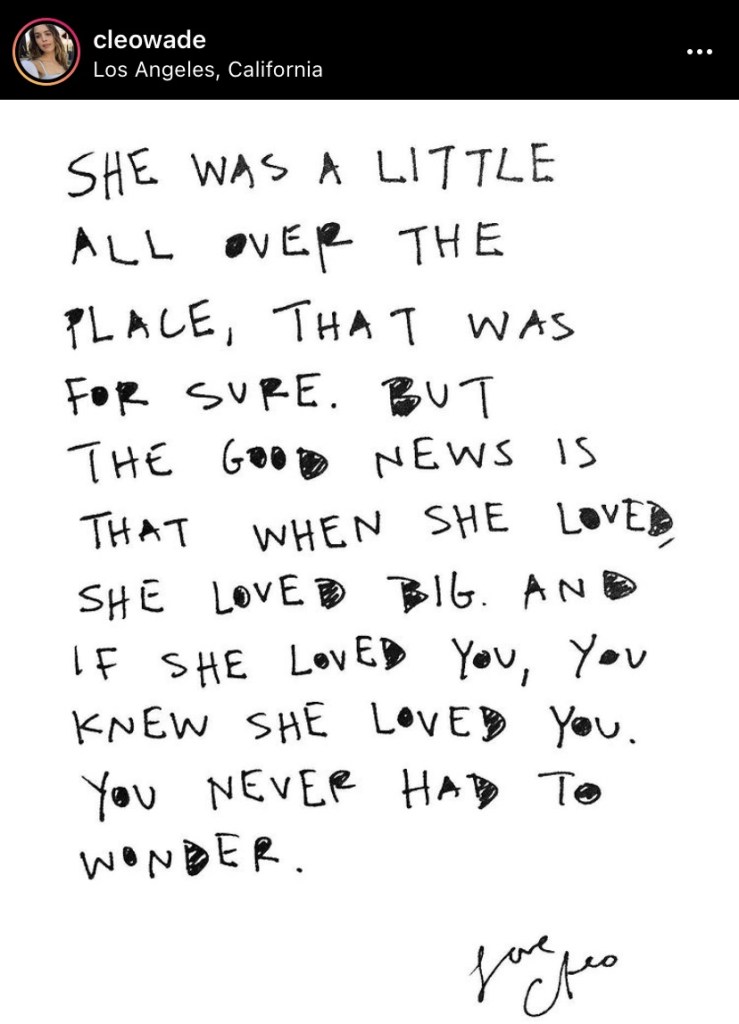 cleowade
Los Angeles, California
SHE WAS A LITTLE
ALL OVER THE
PLACE, THAT WAS
FOR SURE. BUT
THE GOOD NEWS IS
THAT WHEN SHE LOVED,
SHE LOVED BIG. AND
IF SHE LOVED YOU, YOU
KNEW SHE LOVED YOU.
YOU NEVER HAD TO
WONDER.
love
Cleo